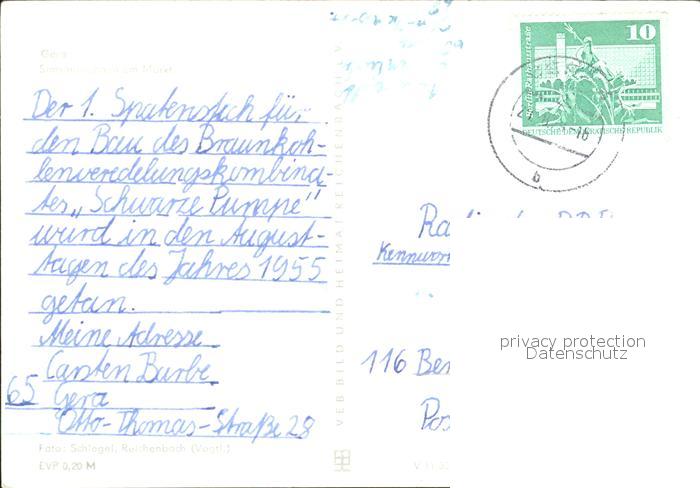 Gera
Simsonbrunnen am Markt
Der 1. Spatenstich für
den Bau des Braunkoh-
lenveredelungskombina-
tes „Schwarze Pumpe"
wurd in den August-
tagen des Jahres 1955
getan.
Meine Adresse
Carsten Burbe
65 Gera
Otto-Thomas-Straße 28
Foto: Schlegel, Reichenbach (Vogtl.)
EVP 0,20 M
VEB BILD UND HEIMAT REICHENBACH
10
DEUTSCHE DEMOKRATISCHE REPUBLIK
b
Kennwor
privacy protection
Datenschutz
116 Ber
Pos
V 11 50